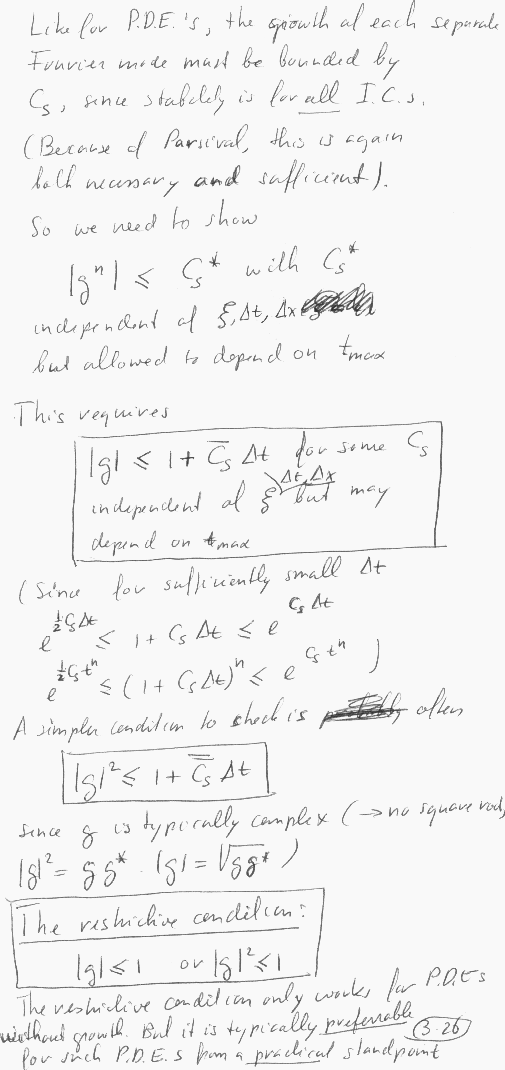 Like for P.D.E.'s, the growth of each separate
Fourier mode must be bounded by
C_s, since stability is for all I.C.s.
(Because of Parsival, this is again
both necessary and sufficient).
So we need to show
|g^n| ≤ C_s^* with C_s^*
independent of ξ, Δt, Δx
but allowed to depend on t_max
This requires
|g| ≤ 1 + C̅_s Δt for some C_s
independent of ξ, Δt, Δx but may
depend on t_max
(Since for sufficiently small Δt
e^{½ C_s Δt} ≤ 1 + C_s Δt ≤ e^{C_s Δt}
e^{½ C_s t^n} ≤ (1 + C_s Δt)^n ≤ e^{C_s t^n} )
A simpler condition to check is often
|g|² ≤ 1 + C̿_s Δt
since g is typically complex (→ no square root,
|g|² = g g^* . |g| = √(g g^*) )
The restrictive condition:
|g| ≤ 1 or |g|² ≤ 1
The restrictive condition only works for P.D.E.s
without growth. But it is typically preferrable
for such P.D.E.s from a practical standpoint
3-26